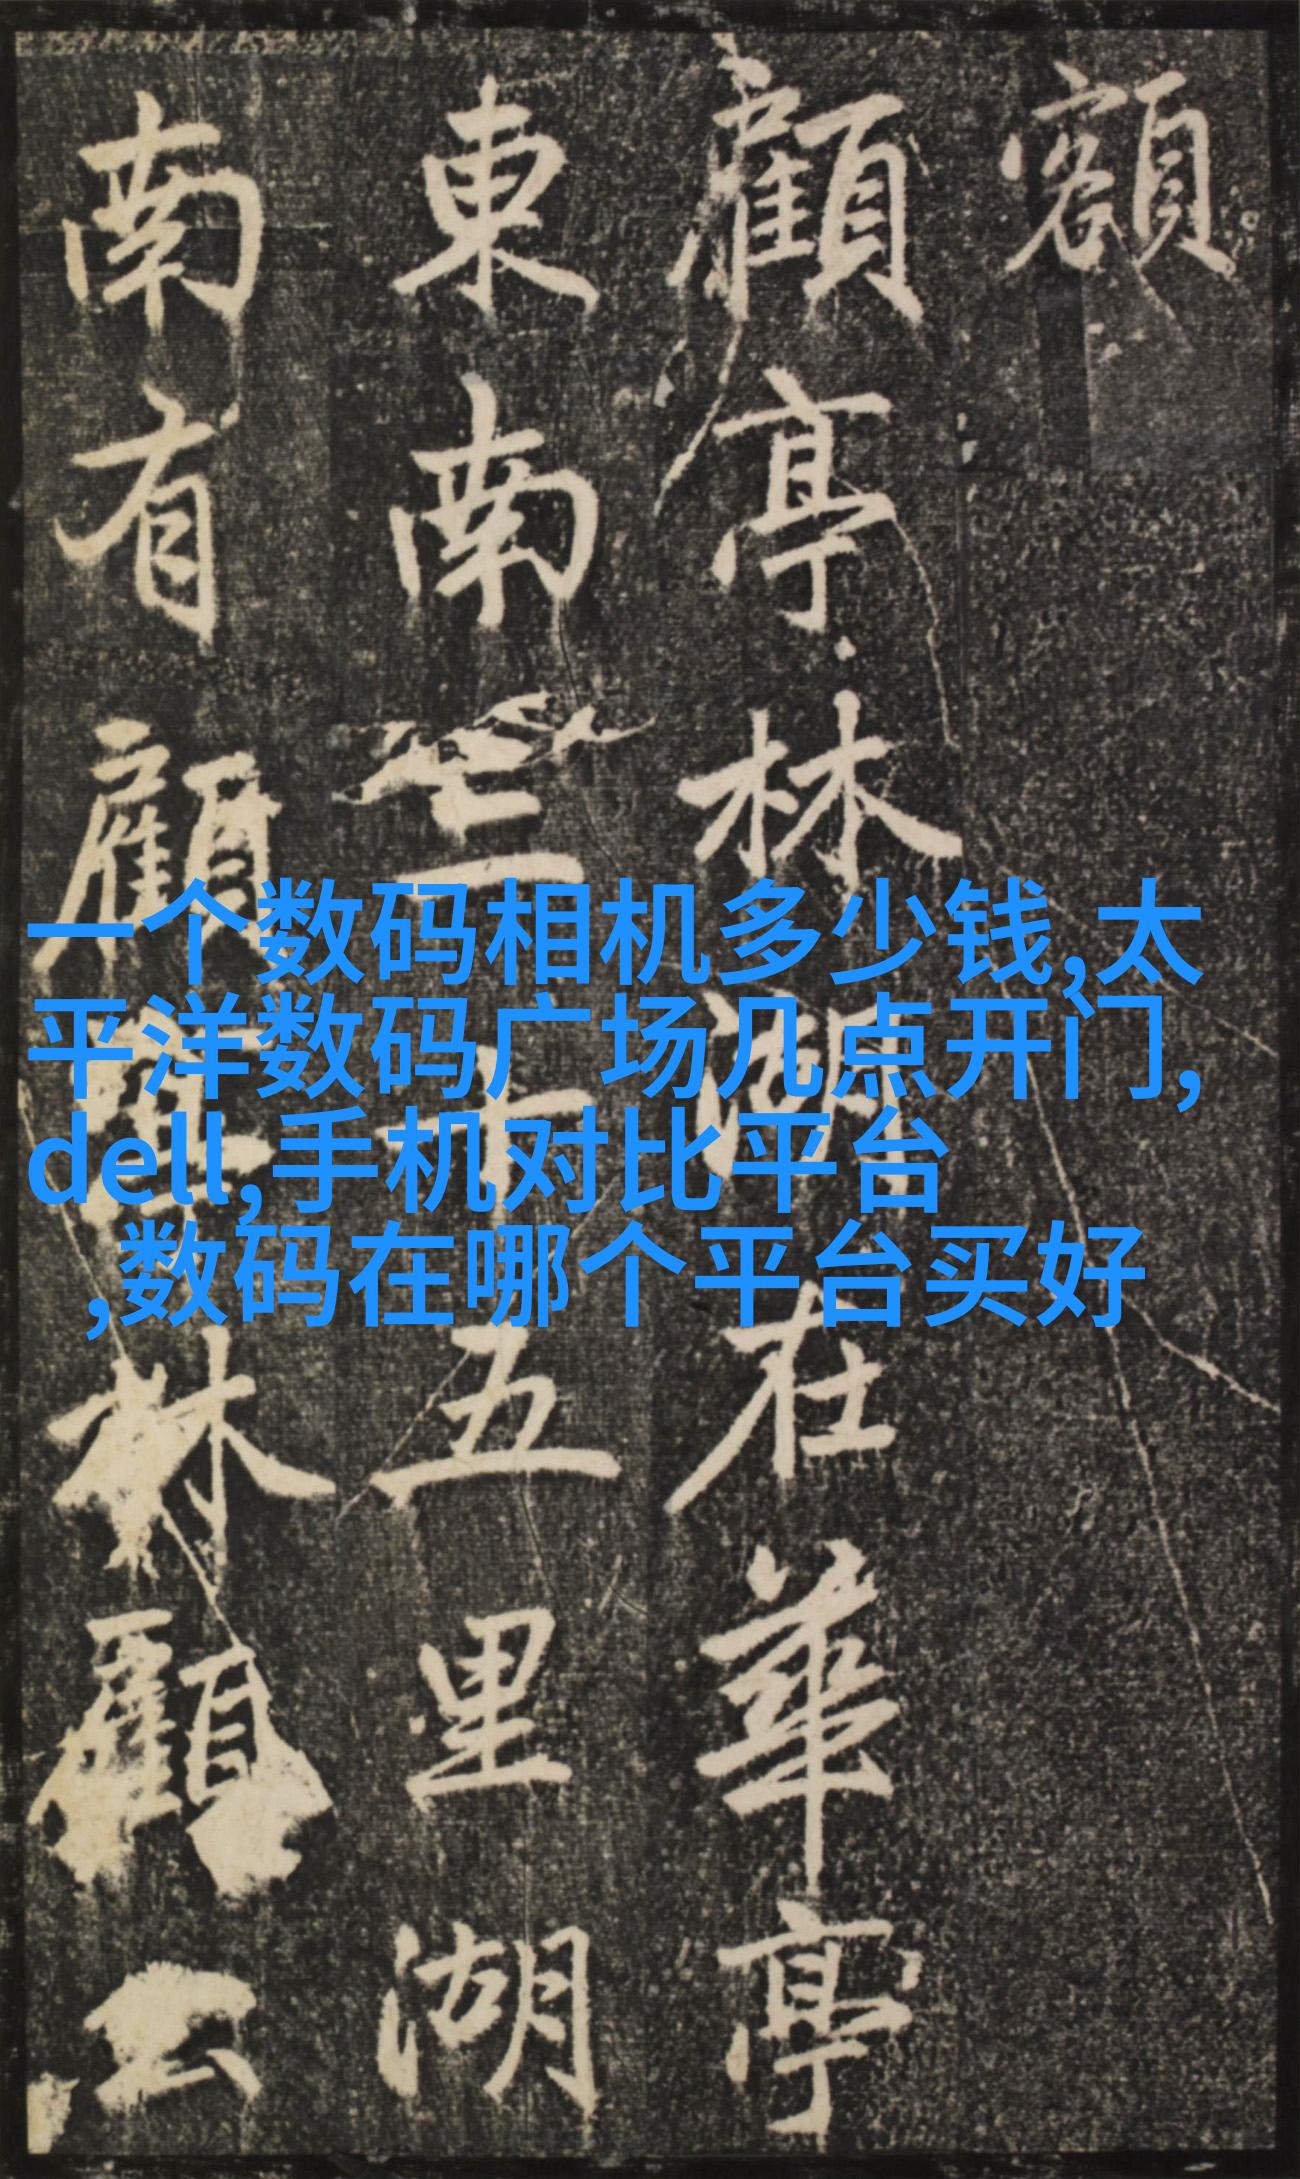 額
顧亭林湖在華亭
東南三十五里湖
南有顧亭林顧
一个数码相机多少钱,太
平洋数码广场几点开门,
dell,手机对比平台
,数码在哪个平台买好